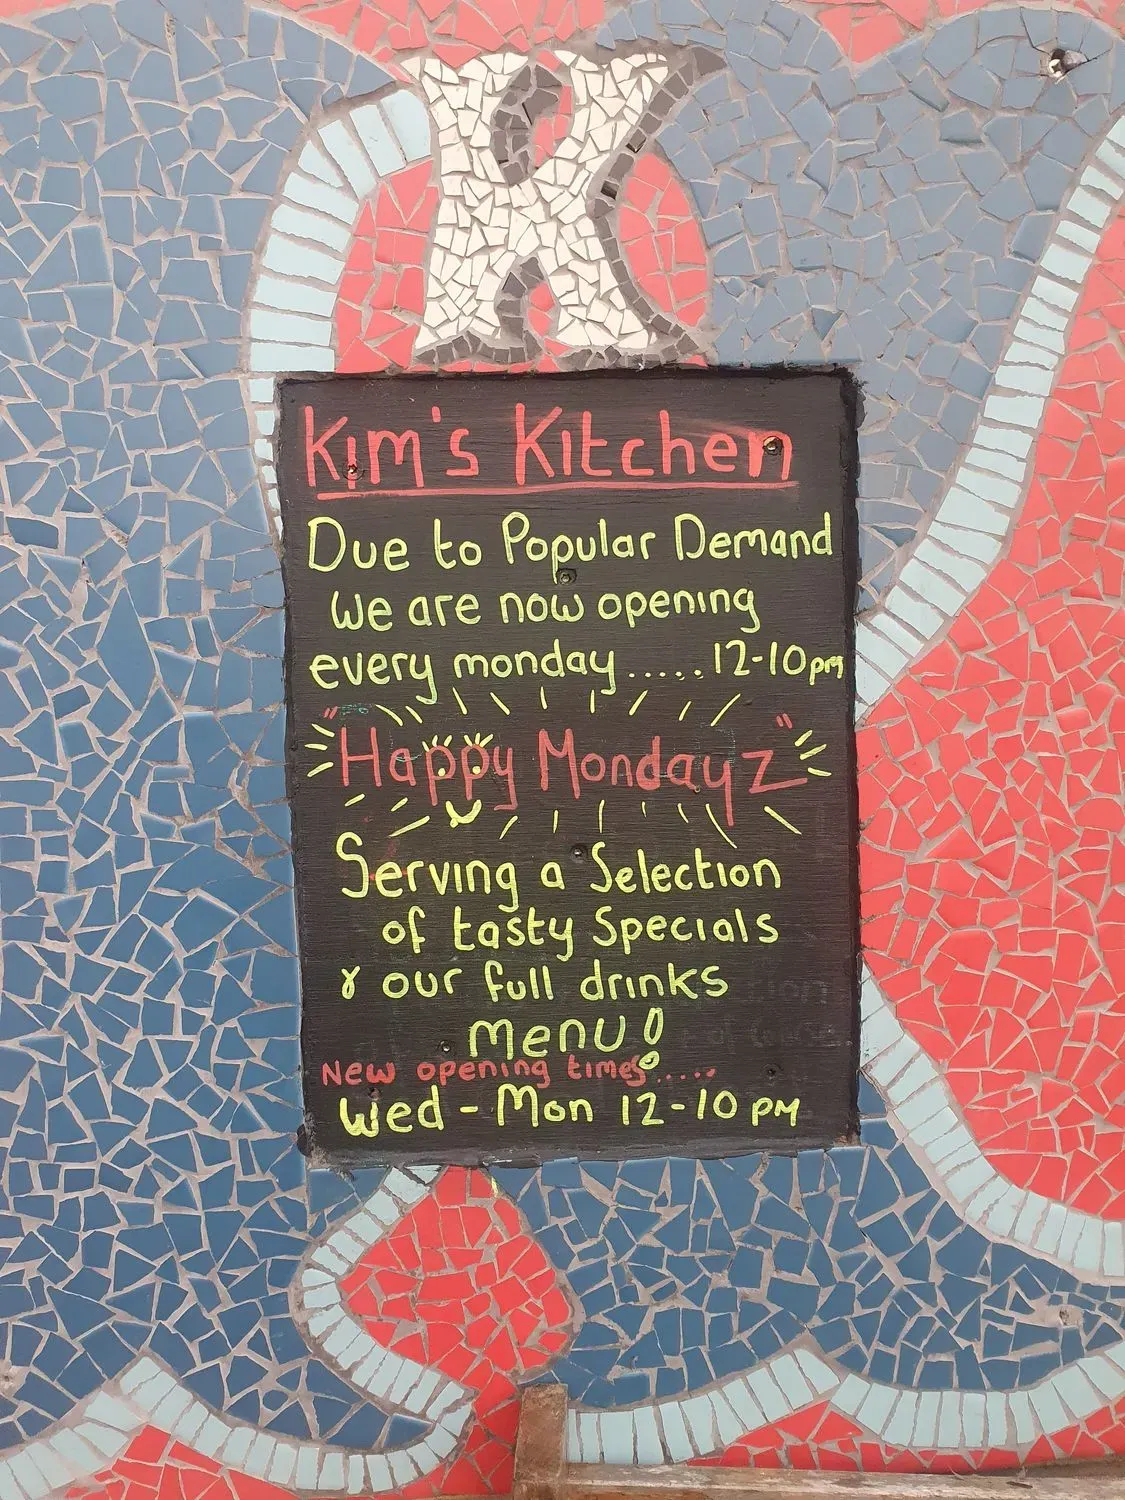 K
Kim's Kitchen
Due to Popular Demand
We are now opening
every monday .....12-10pm
"Happy Mondayz"
Serving a Selection
of tasty Specials
& our full drinks
menu!
New opening times.....
Wed - Mon 12-10 pm